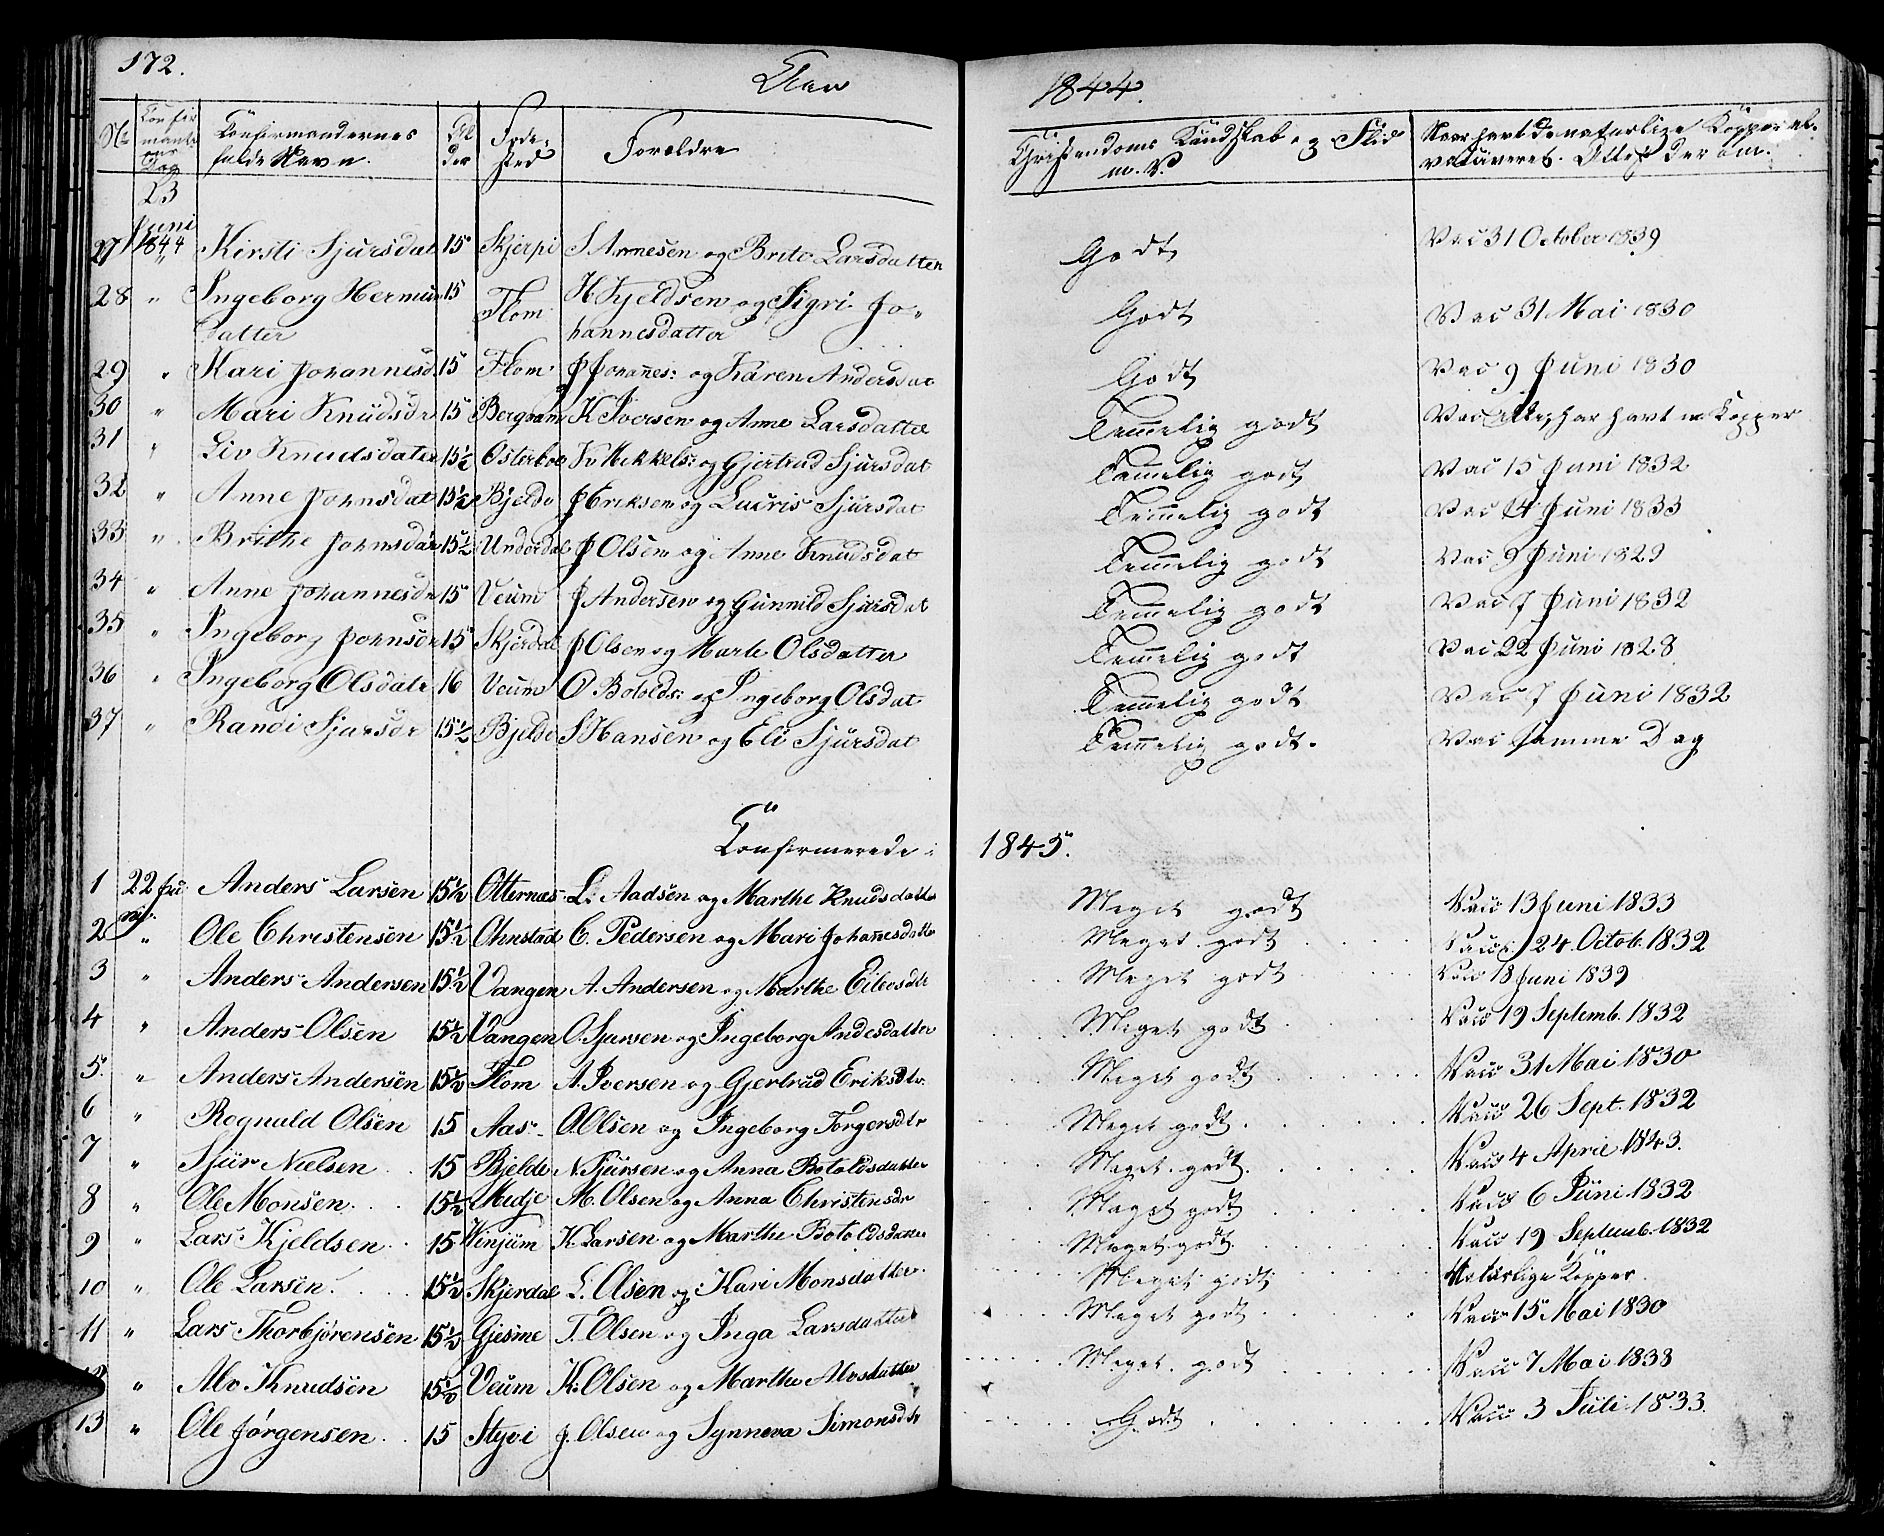 172.
1844.
No Confirmantions Dag Confirmandernes fulde Navn. Alder Fødested Forældre Christendoms Kundskab og Flid m. V. Naar havt de naturlige Kopper el. vaccineret. Attest derom.
23 Juni 1844
27 " Kirsti Sjursdat 15 Skjerpi S Arnesen og Brite Larsdatter Godt Vac 31 October 1839
28 " Ingeborg Hermun 15 Flom H Kjeldsen og Sigri Jo-
datter hannesdatter Godt Vac 31 Mai 1830
29 " Kari Johannesd 15 Flom J Johanes: og Karen Andersdat Godt Vac 9 Juni 1830
30 " Mari Knudsdr 15 K Iversen og Anne Larsdatter Temmelig godt Vac ikke, har havt n Kopper
31 " Liv Knudsdater 15½ Østerbøe K Mikkels: og Gjertrud Sjursdat Temmelig godt Vac 15 Juni 1832
32 " Anne Johnsdat 15½ Bjelde J Eriksen og Lucris Sjursdat Temmelig godt Vac 14 Juni 1833
33 " Brithe Johnsdat 15½ Underdal J Olsen og Anne Knudsdat Temmelig godt Vac 9 Juni 1829
34 " Anne Johannesdr 15 Veum J Andersen og Gunnild Sjursdat Temmelig godt Vac 7 Juni 1832
35 " Ingeborg Johnsdr 15 Skjerdal J Olsen og Marte Olsdatter Temmelig godt Vac 22 Juni 1828
36 " Ingeborg Olsdatr 16 Veum O Botolds: og Ingeborg Olsdat Temmelig godt Vac 7 Juni 1832
37 " Randi Sjursdr 15½ Bjelde S Hansen og Eli Sjursdat Temmelig godt. Vac samme Dag
Confirmerede i 1845.
1 22 Juni Anders Larsen 15½ Otternæs L. Aadsen og Marthe Knudsdatter Meget godt Vacc 13 Juni 1833
2 " Ole Christensen 15½ Ohnstad C. Pedersen og Mari Johanesdatter Meget godt Vacc 24 Octob. 1832
3 " Anders Andersen 15½ Vangen A. Andersen og Marthe Eilevsdtr Meget godt Vac 18 Juni 1839
4 " Anders Olsen 15½ Vangen O. Sjursen og Ingeborg Andesdatter Meget godt Vacc 19 Septemb. 1832
5. " Anders Andersen 15½ Flom A. Iversen og Gjertrud Eriksdtr Meget godt Vacc 31 Mai 1830
6 " Rognald Olsen 15 Aas O. Olsen og Ingeborg Torgersdtr Meget godt Vacc 26 Sept. 1832
7 " Sjur Nielsen 15 Bjelde N. Sjursen og Anna Botoldsdatter Meget godt Vacc 4 April 1843.
8 " Ole Monsen 15½ Midje M. Olsen og Anna Christensdr Meget godt Vacc 6 Juni 1832
9 " Lars Kjeldsen 15 Vinjum K. Larsen og Marthe Botoldsdatter Meget godt Vacc 19 Septemb. 1832
10 " Ole Larsen 15½ Skjerdal L. Olsen og Kari Monsdatter Meget godt Naturlige Kopper
11 " Lars Thorbjørensen 15½ Gjesme T. Olsen og Inga Larsdatter Meget godt Vacc 15 Mai 1830
" Alv Knudsen 15½ Veum K. Olsen og Marthe Alvsdatter Meget godt Vacc 7 Mai 1838
13 " Ole Jørgensen 15 Styvi J. Olsen og Synneva Simonsdtr Godt Vacc 3 Juli 1833.